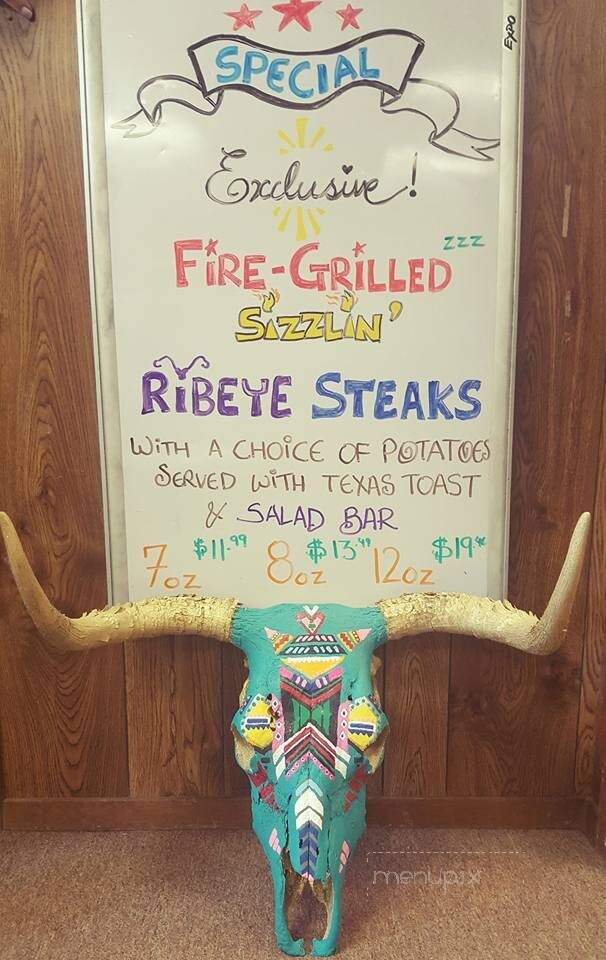 SPECIAL
EXPO
Exclusive!
FIRE-GRILLED zzz
SIZZLIN'
RIBEYE STEAKS
WITH A CHOICE OF POTATOES
SERVED WITH TEXAS TOAST
& SALAD BAR
7oz $11.99 8oz $13.99 12oz $19.
menupix